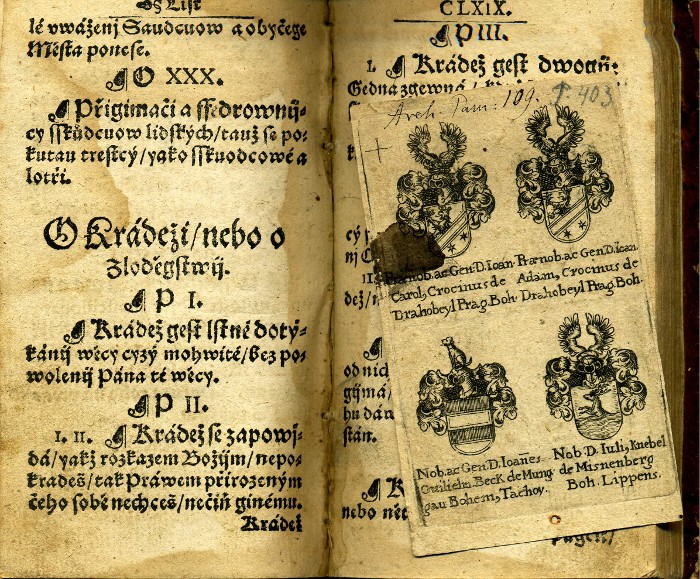 List
lé vwáženj Saudcuow a obyčege
Města ponese.
O XXX.
Přigimači a ssedrownij-
cy sskůdcuow lidských/ tauž se po-
kutau trestcý/ yako sskuodcowé a
lotři.
O Krádeži/ nebo o
Zlodėgstwij.
P I.
Krádež gest lstné dotý-
kánij wěcy cyzý mohwité/ bez po-
wolenij Pána té wěcy.
P II.
I. II. Krádež se zapowj-
dá/ yakž rozkazem Božijm/ nepo-
kradeš/ tak Práwem přirozeným
čeho sobě nechceš/ nečiň ginému.
Krádež
CLXIX.
P III.
I. Krádež gest dwogij:
Gedna zgewná
cý
nj
II
dež/
od
gijmá/
hu dán
stán.
K
nebo
Arch. Pam: 109. 403
+
Prænob. ac Gen. D. Ioan
Carol, Crocinus de
Drahobeyl Prag. Boh.
Prænob. ac Gen. D. Ioan
Adam, Crocinus de
Drahobeyl Prag. Boh.
Nob. ac Gen. D. Ioañes
Guilielm Beck de Mung
gau Bohem, Tachov.
Nob. D. Iuli, Knebel
de Misnenberg
Boh. Lippens.